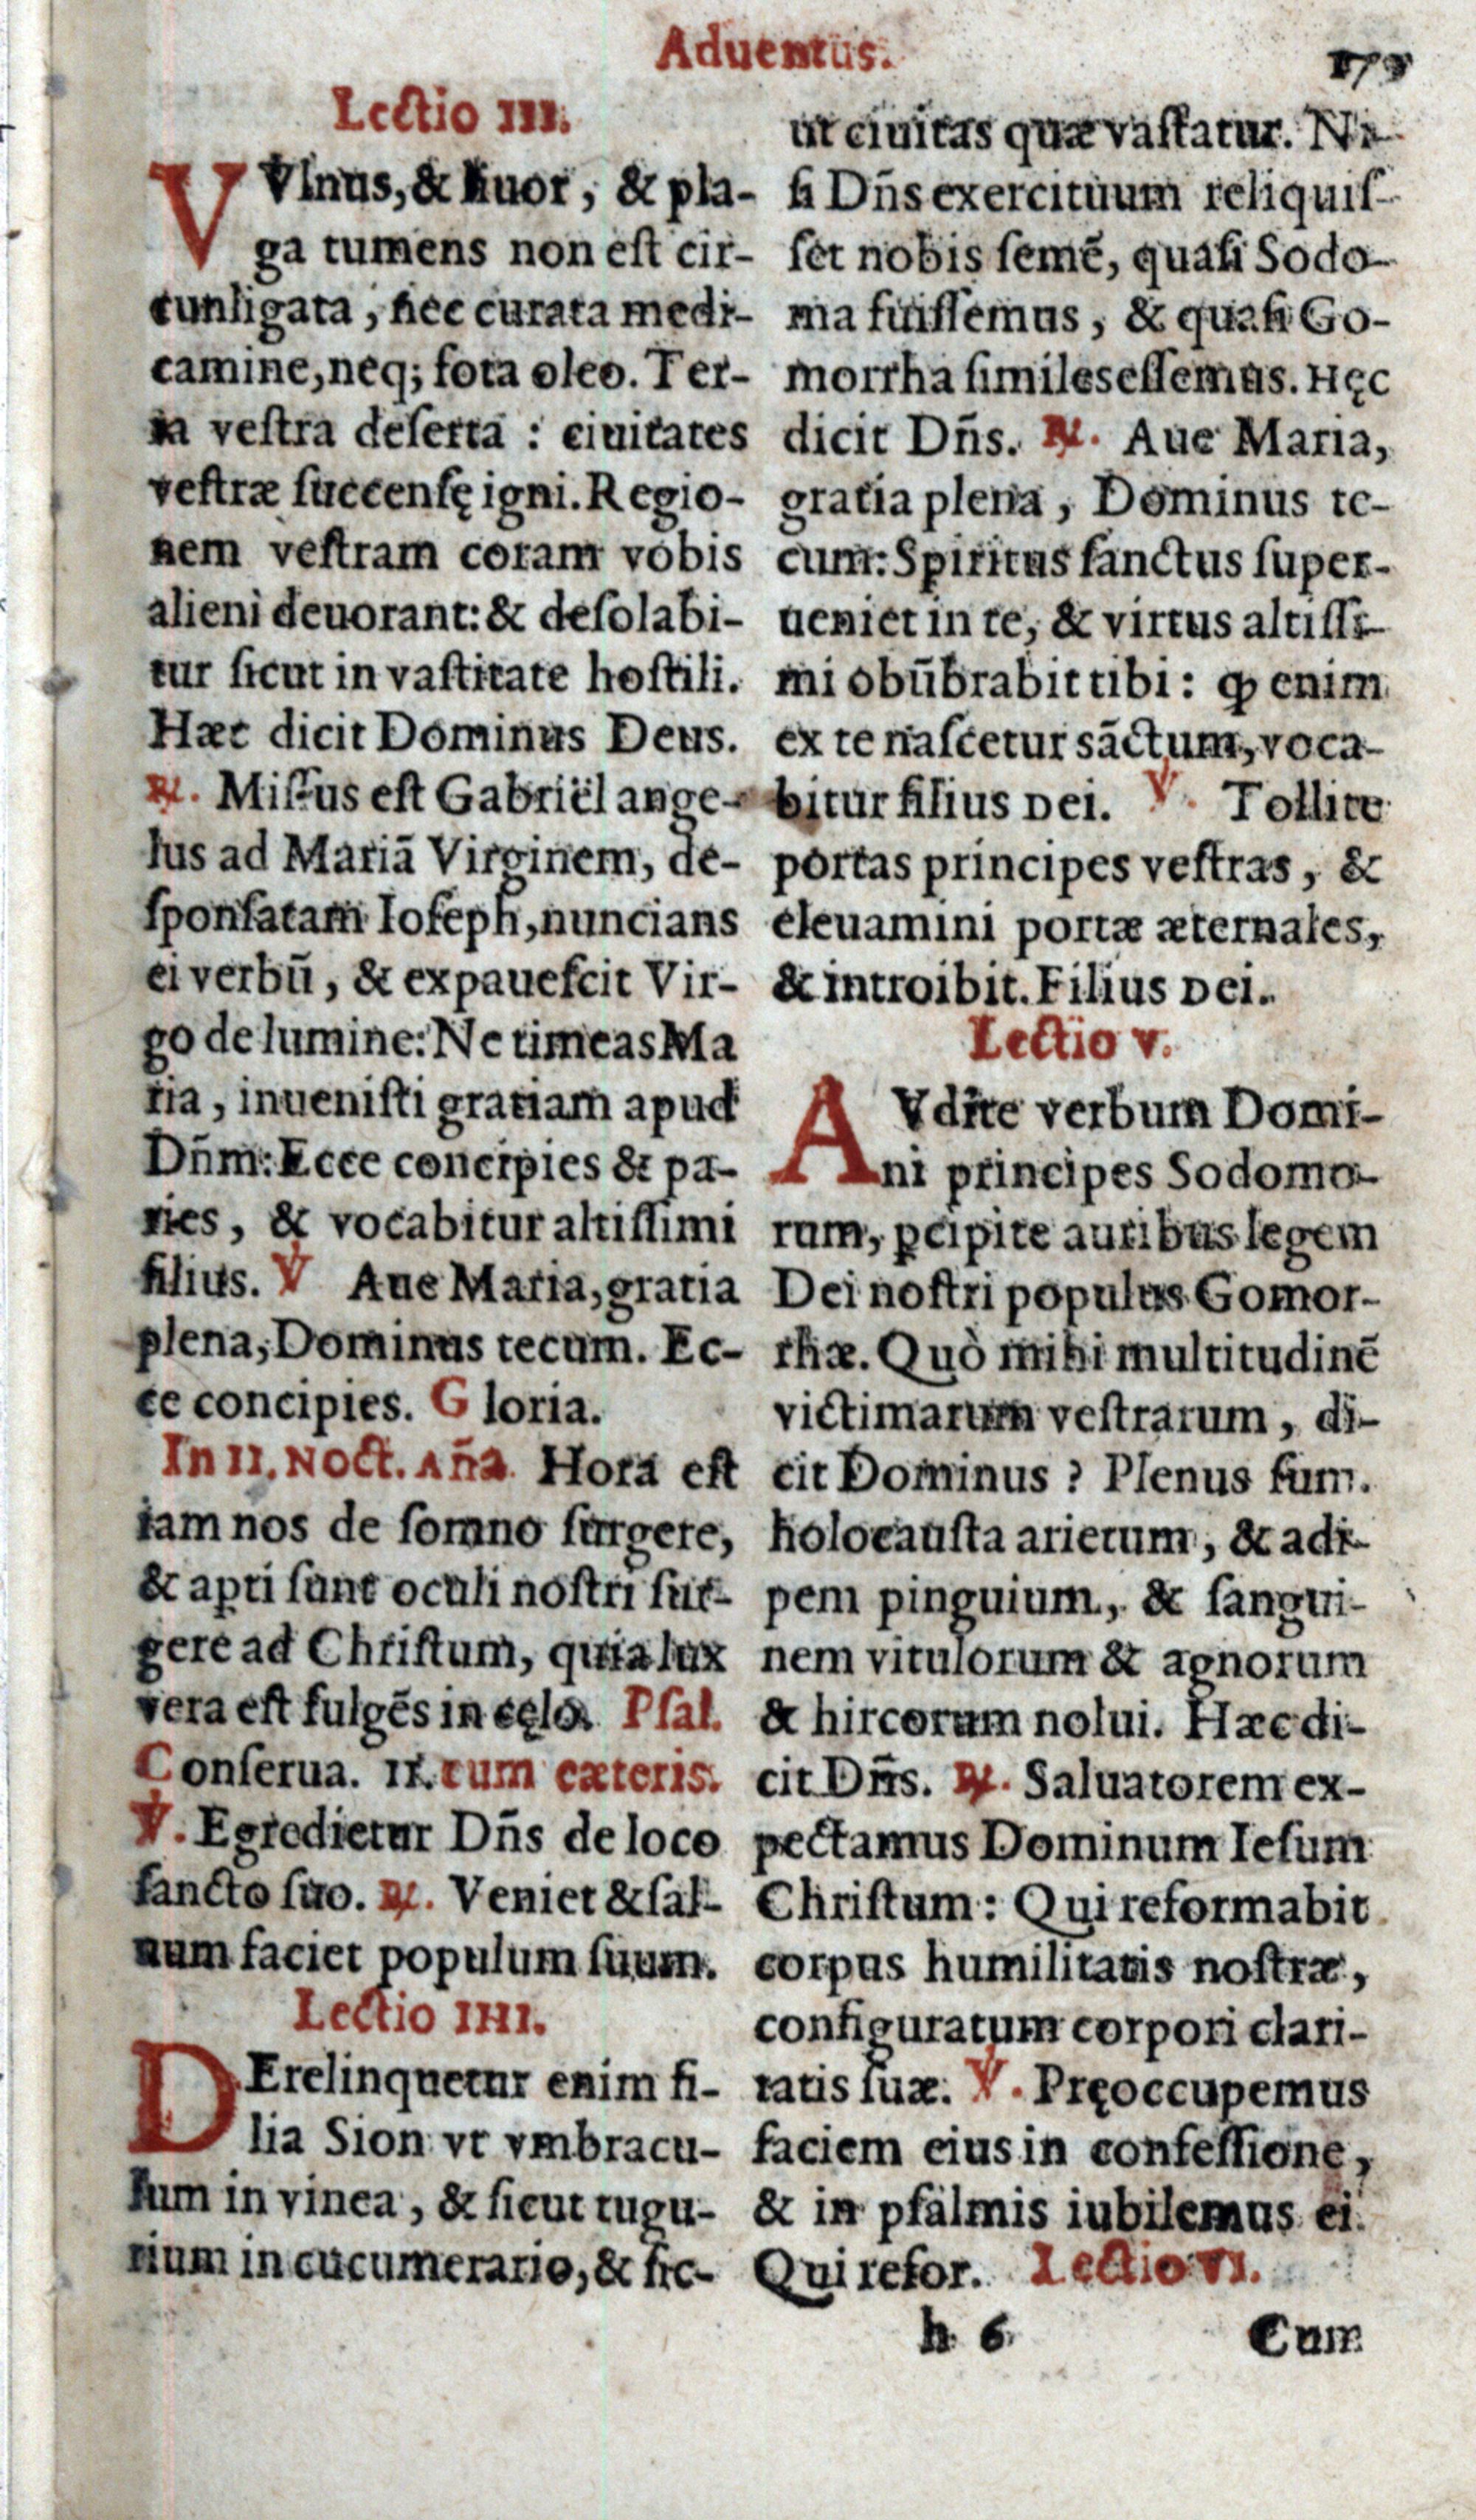 Aduentus.
Lectio III.
VVlnus, & liuor, & pla-
ga tumens non est cir-
cunligata, nec curata medi-
camine, neq; fota oleo. Ter-
ra vestra deserta : ciuitates
vestræ succensę igni. Regio-
nem vestram coram vobis
alieni deuorant: & desolabi-
tur sicut in vastitate hostili.
Hæc dicit Dominus Deus.
℟. Missus est Gabriël ange-
lus ad Mariã Virginem, de-
sponsatam Ioseph, nuncians
ei verbũ, & expauescit Vir-
go de lumine: Ne timeas Ma
ria, inuenisti gratiam apud
Dñm: Ecce concipies & pa-
ries, & vocabitur altissimi
filius. ℣ Aue Maria, gratia
plena, Dominus tecum. Ec-
ce concipies. Gloria.
In II. Noct. Añа. Hora est
iam nos de somno surgere,
& apti sunt oculi nostri sur-
gere ad Christum, quia lux
vera est fulgẽs in cęlo. Psal.
Conserua. II. cum cæteris.
℣. Egredietur Dñs de loco
sancto suo. ℟. Veniet & sal-
uum faciet populum suum.
Lectio IIII.
DErelinquetur enim fi-
lia Sion vt vmbracu-
lum in vinea, & sicut tugu-
rium in cucumerario, & sic-
ut ciuitas quæ vastatur. Ni-
si Dñs exercituum reliquis-
set nobis semẽ, quasi Sodo-
ma fuissemus, & quasi Go-
morrha similes essemus. Hęc
dicit Dñs. ℟. Aue Maria,
gratia plena, Dominus te-
cum: Spiritus sanctus super-
ueniet in te, & virtus altissi-
mi obũbrabit tibi: ꝙ enim
ex te nascetur sãctum, voca-
bitur filius Dei. ℣. Tollite
portas principes vestras, &
eleuamini portæ æternales,
& introibit. Filius Dei.
Lectio V.
AVdite verbum Domi-
ni principes Sodomo-
rum, ꝑcipite auribus legem
Dei nostri populus Gomor-
rhæ. Quò mihi multitudinẽ
victimarum vestrarum, di-
cit Dominus ? Plenus sum.
holocausta arietum, & adi-
pem pinguium, & sangui-
nem vitulorum & agnorum
& hircorum nolui. Hæc di-
cit Dñs. ℟. Saluatorem ex-
pectamus Dominum Iesum
Christum: Qui reformabit
corpus humilitatis nostræ,
configuratum corpori clari-
tatis suæ. ℣. Pręoccupemus
faciem eius in confessione,
& in psalmis iubilemus ei.
Qui refor. Lectio VI.
h 6 Cum